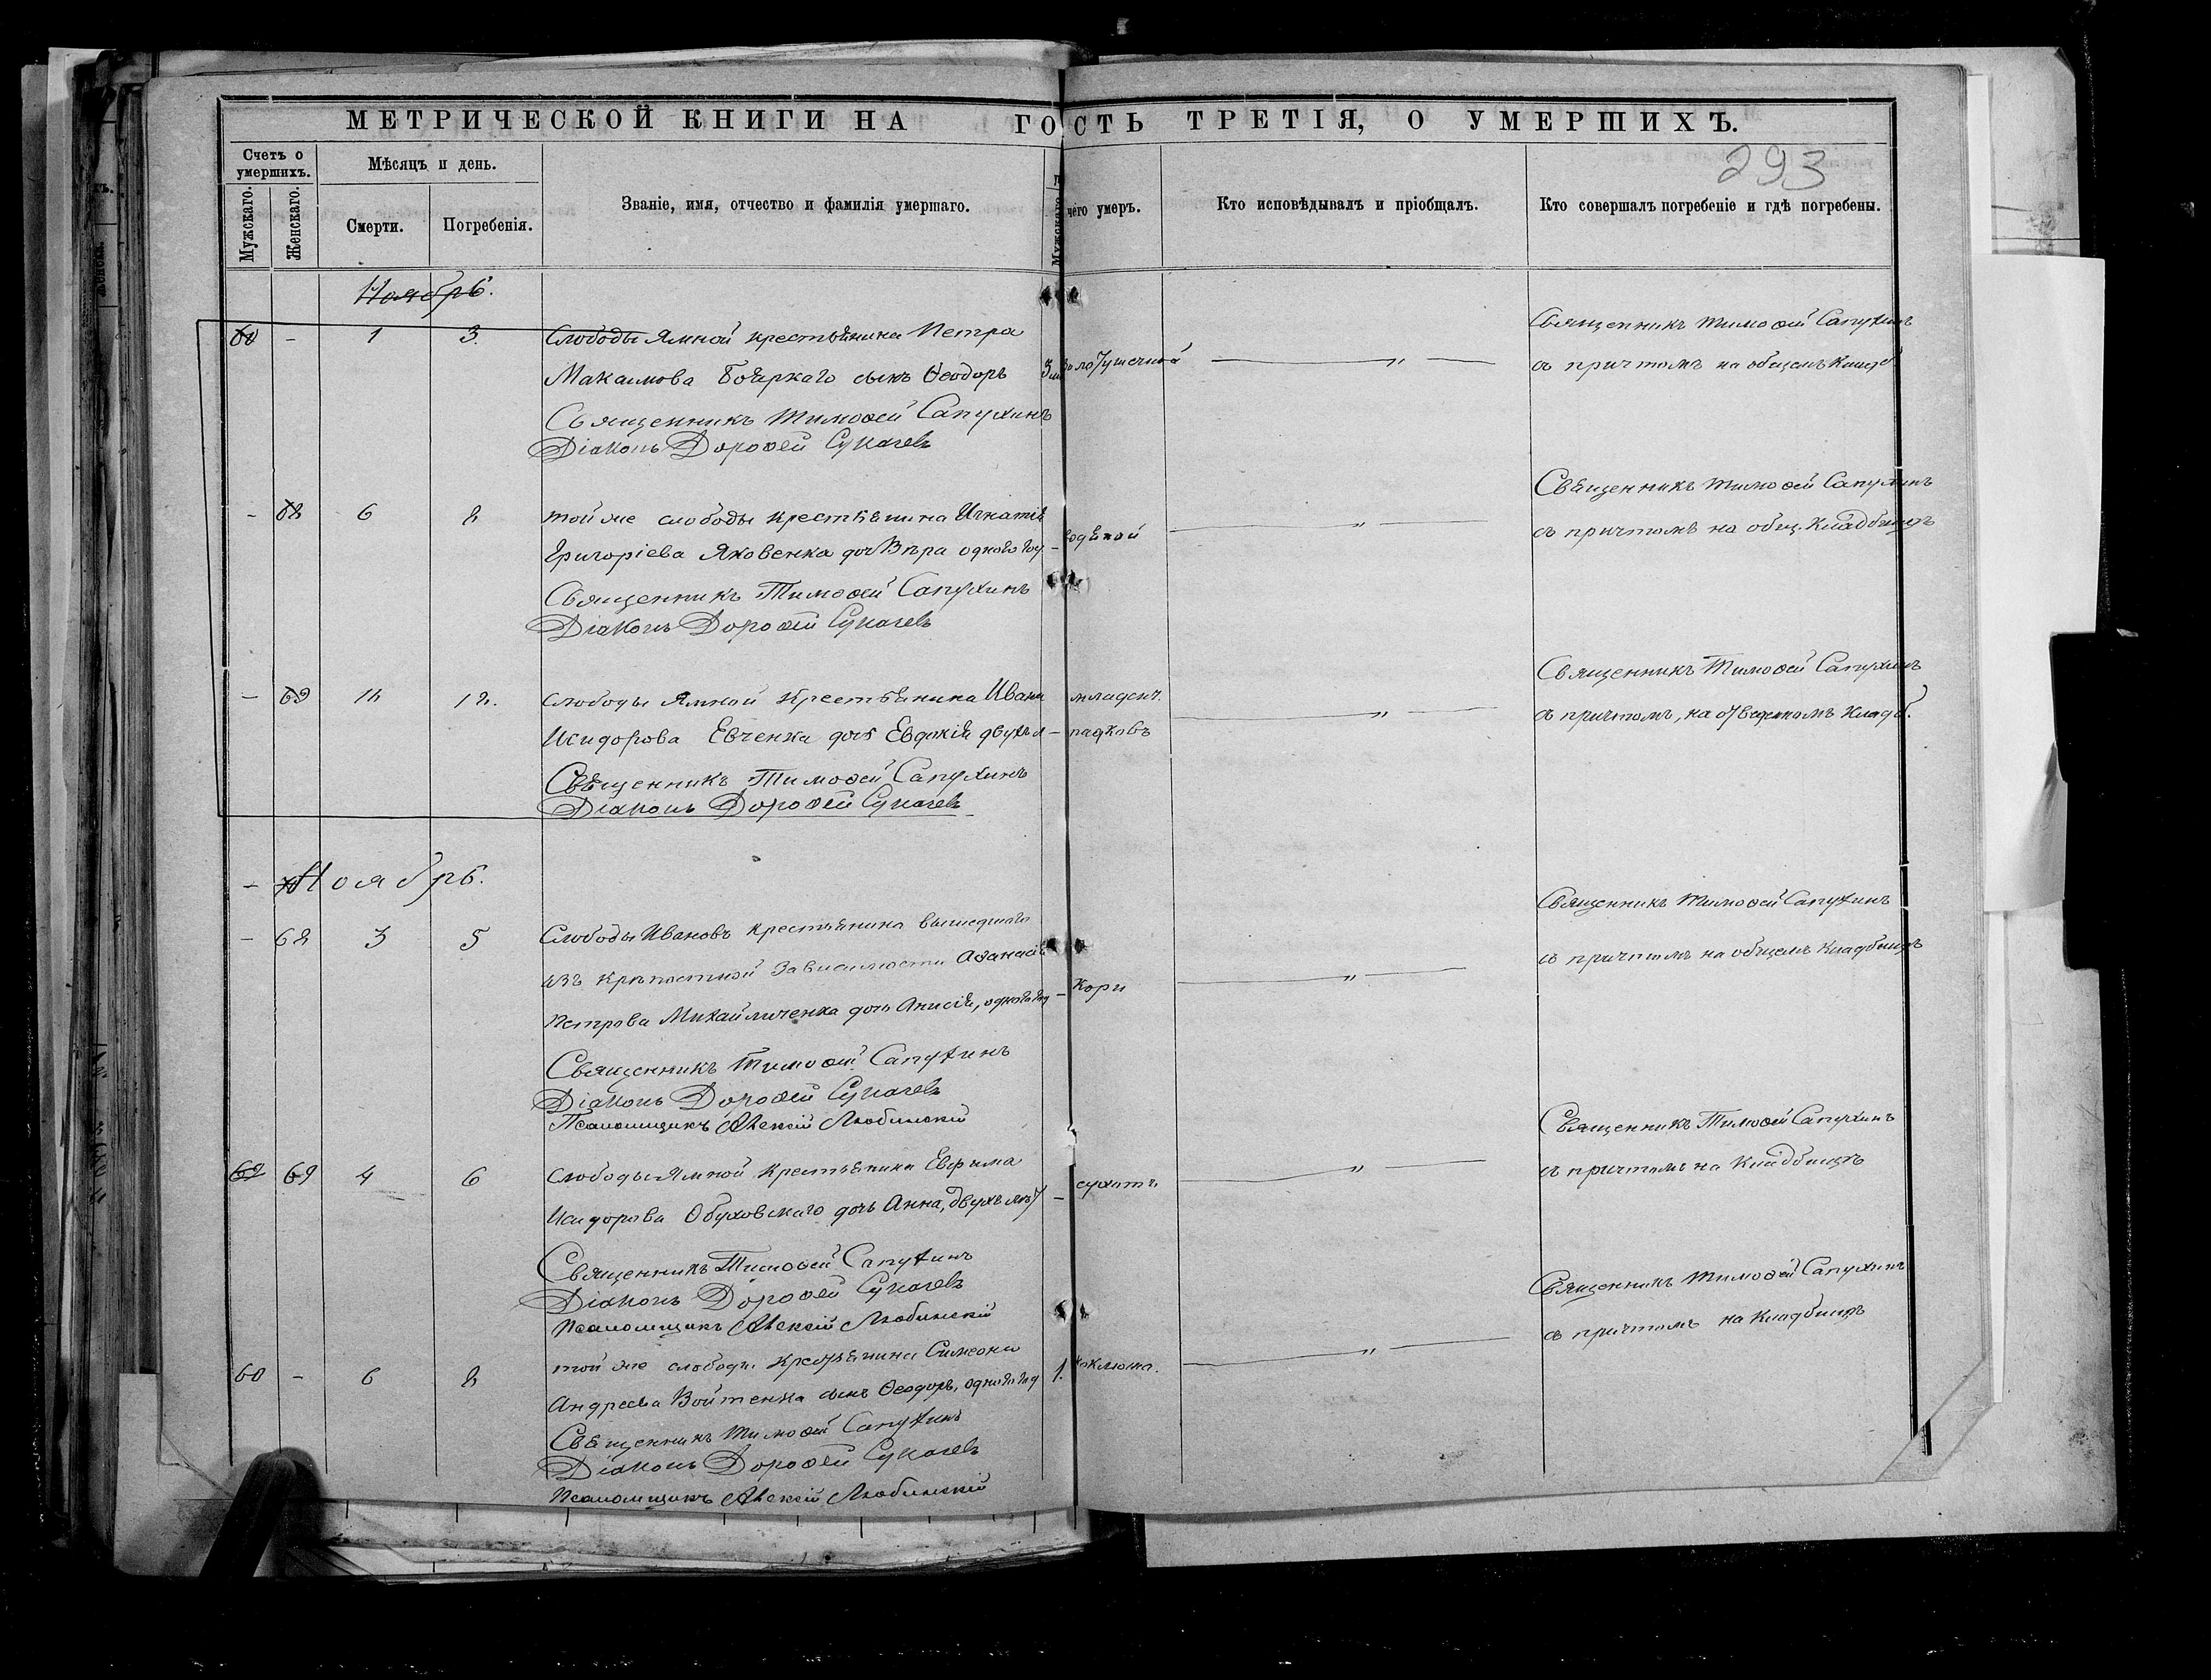 МЕТРИЧЕСКОЙ КНИГИ НА ГО СТЬ ТРЕТІЯ, О УМЕРШИХЪ.
293
Счетъ о умершихъ.
Мѣсяцъ и день.
Званіе, имя, отчество и фамилія умершаго.
чего умеръ.
Кто исповѣдывалъ и пріобщалъ.
Кто совершалъ погребеніе и гдѣ погребены.
Мужскаго.
Женскаго.
Смерти.
Погребенія.
Мужскаго
Ноябрь.
Священникъ Тимоѳей Сапухинъ
60 - 1 3. Слободы Ямной крестьянина Петра
съ причтомъ на общемъ Кладб.
Максимова Бояркаго сынъ Ѳеодоръ 3 золотушечной "
Священникъ Тимоѳей Сапухинъ
Діаконъ Дороѳей Сукачевъ
Священникъ Тимоѳей Сапухинъ
- 68 6 8 той же слободы крестьянина Игнатія
съ причтомъ на общ. Кладбищѣ
Григоріева Яковенка дочь Вѣра одного год. - водяной "
Священникъ Тимоѳей Сапухинъ
Діаконъ Дороѳей Сукачевъ
Священникъ Тимоѳей Сапухинъ
- 69 12. Слободы Ямной Крестьянина Ивана младенч.
съ причтомъ, на отведенномъ Кладб.
Исидорова Евченка дочь Евдокія двухъ л - падковъ "
Священникъ Тимоѳей Сапухинъ
Діаконъ Дороѳей Сукачевъ
- 70 Ноябрь.
Священникъ Тимоѳей Сапухинъ
- 68 3 5 Слободы Ивановъ крестьянина вышедшаго
съ причтомъ на общемъ Кладбищѣ
изъ крѣпостной зависимости Аѳанасія
Петрова Михайличенка дочь Анисія, одного год - Кори "
Священникъ Тимоѳей Сапухинъ
Діаконъ Дороѳей Сукачевъ
Псаломщикъ Алексій Любинскій
Священникъ Тимоѳей Сапухинъ
69 4 6 Слободы Ямной Крестьянина Евфима
съ причтомъ на Кладбищѣ
Исидорова Обуховскаго дочь Анна, двухъ лѣт - сухоты "
Священникъ Тимоѳей Сапухинъ
Діаконъ Дороѳей Сукачевъ
Псаломщикъ Алексій Любинскій
Священникъ Тимоѳей Сапухинъ
60 - 6 8 той же слободы Крестьянина Симеона
съ причтомъ на Кладбищѣ
Андреева Войтенка сынъ Ѳеодоръ, одного год 1. коклюша. "
Священникъ Тимоѳей Сапухинъ
Діаконъ Дороѳей Сукачевъ
Псаломщикъ Алексій Любинскій